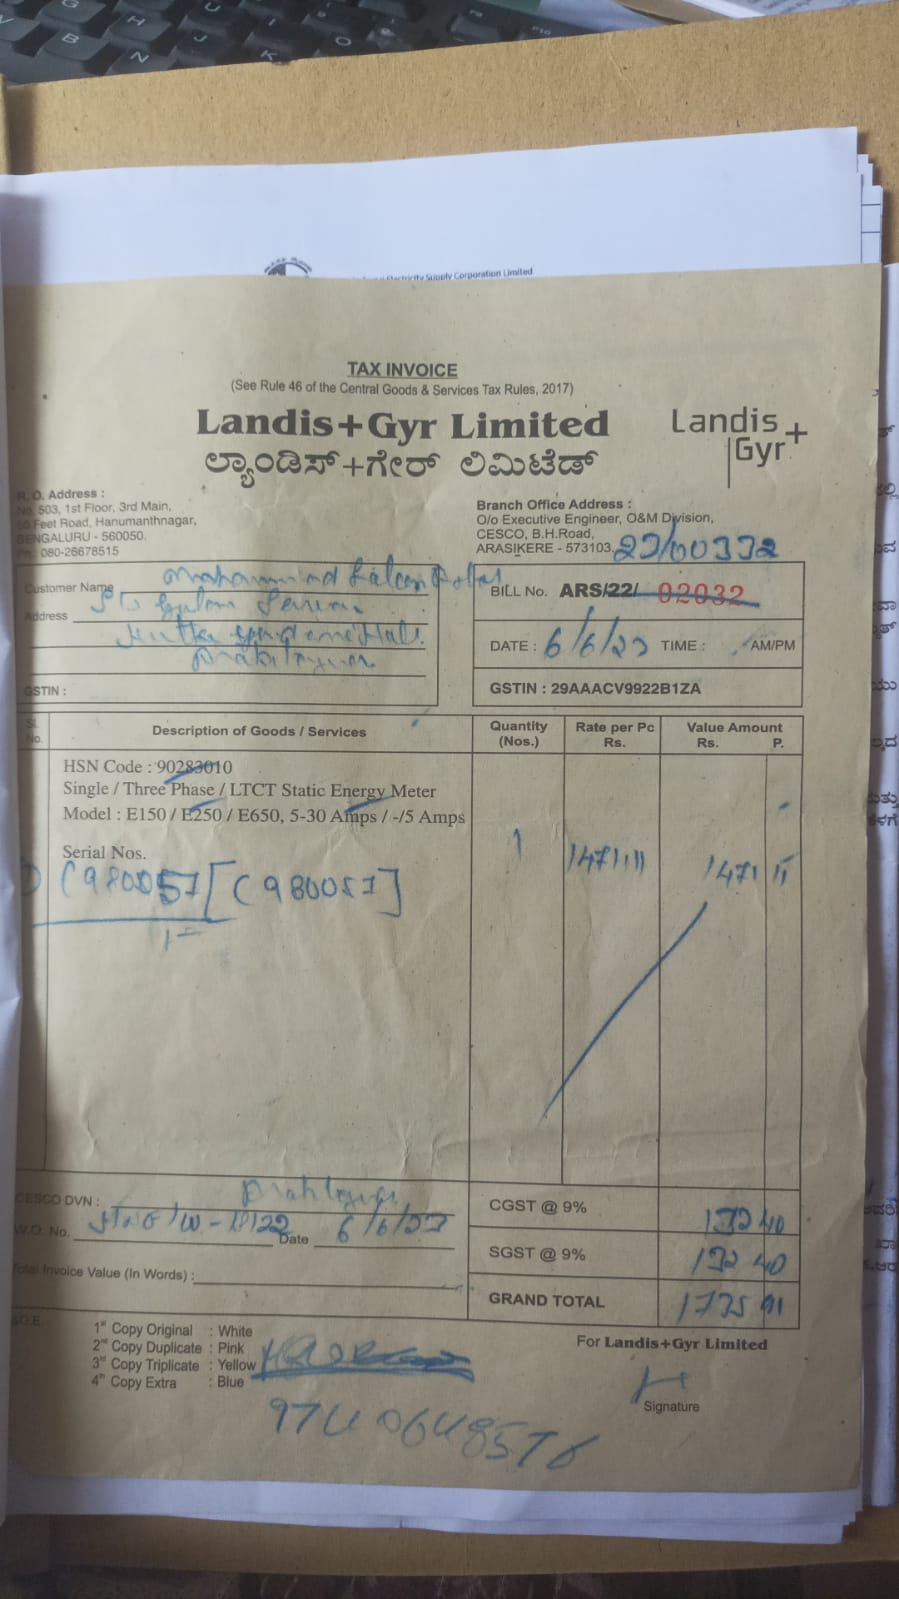 Electricity Supply Corporation Limited
TAX INVOICE
(See Rule 46 of the Central Goods & Services Tax Rules, 2017)
Landis+Gyr Limited
ಲ್ಯಾಂಡಿಸ್+ಗೇರ್ ಲಿಮಿಟೆಡ್
Landis+
Gyr
R.O. Address :
No. 503, 1st Floor, 3rd Main,
Feet Road, Hanumanthnagar,
BENGALURU - 560050.
080-26678515
Branch Office Address :
O/o Executive Engineer, O&M Division,
CESCO, B.H.Road,
ARASIKERE - 573103.
23/00332
Customer Name
Address
GSTIN :
BILL No. ARS/22/ 02032
DATE : 6/6/23 TIME : AM/PM
GSTIN : 29AAACV9922B1ZA
Sl. No. Description of Goods / Services Quantity (Nos.) Rate per Pc Rs. Value Amount Rs. P.
HSN Code : 90283010
Single / Three Phase / LTCT Static Energy Meter
Model : E150 / E250 / E650, 5-30 Amps / -/5 Amps
1 1471.11 1471 11
Serial Nos.
(980057 [(980057]
CESCO DVN :
W.O. No. Date 6/6/23
Total Invoice Value (In Words) :
CGST @ 9% 132 40
SGST @ 9% 132 40
GRAND TOTAL 1735 91
1st Copy Original : White
2nd Copy Duplicate : Pink
3rd Copy Triplicate : Yellow
4th Copy Extra : Blue
For Landis+Gyr Limited
Signature